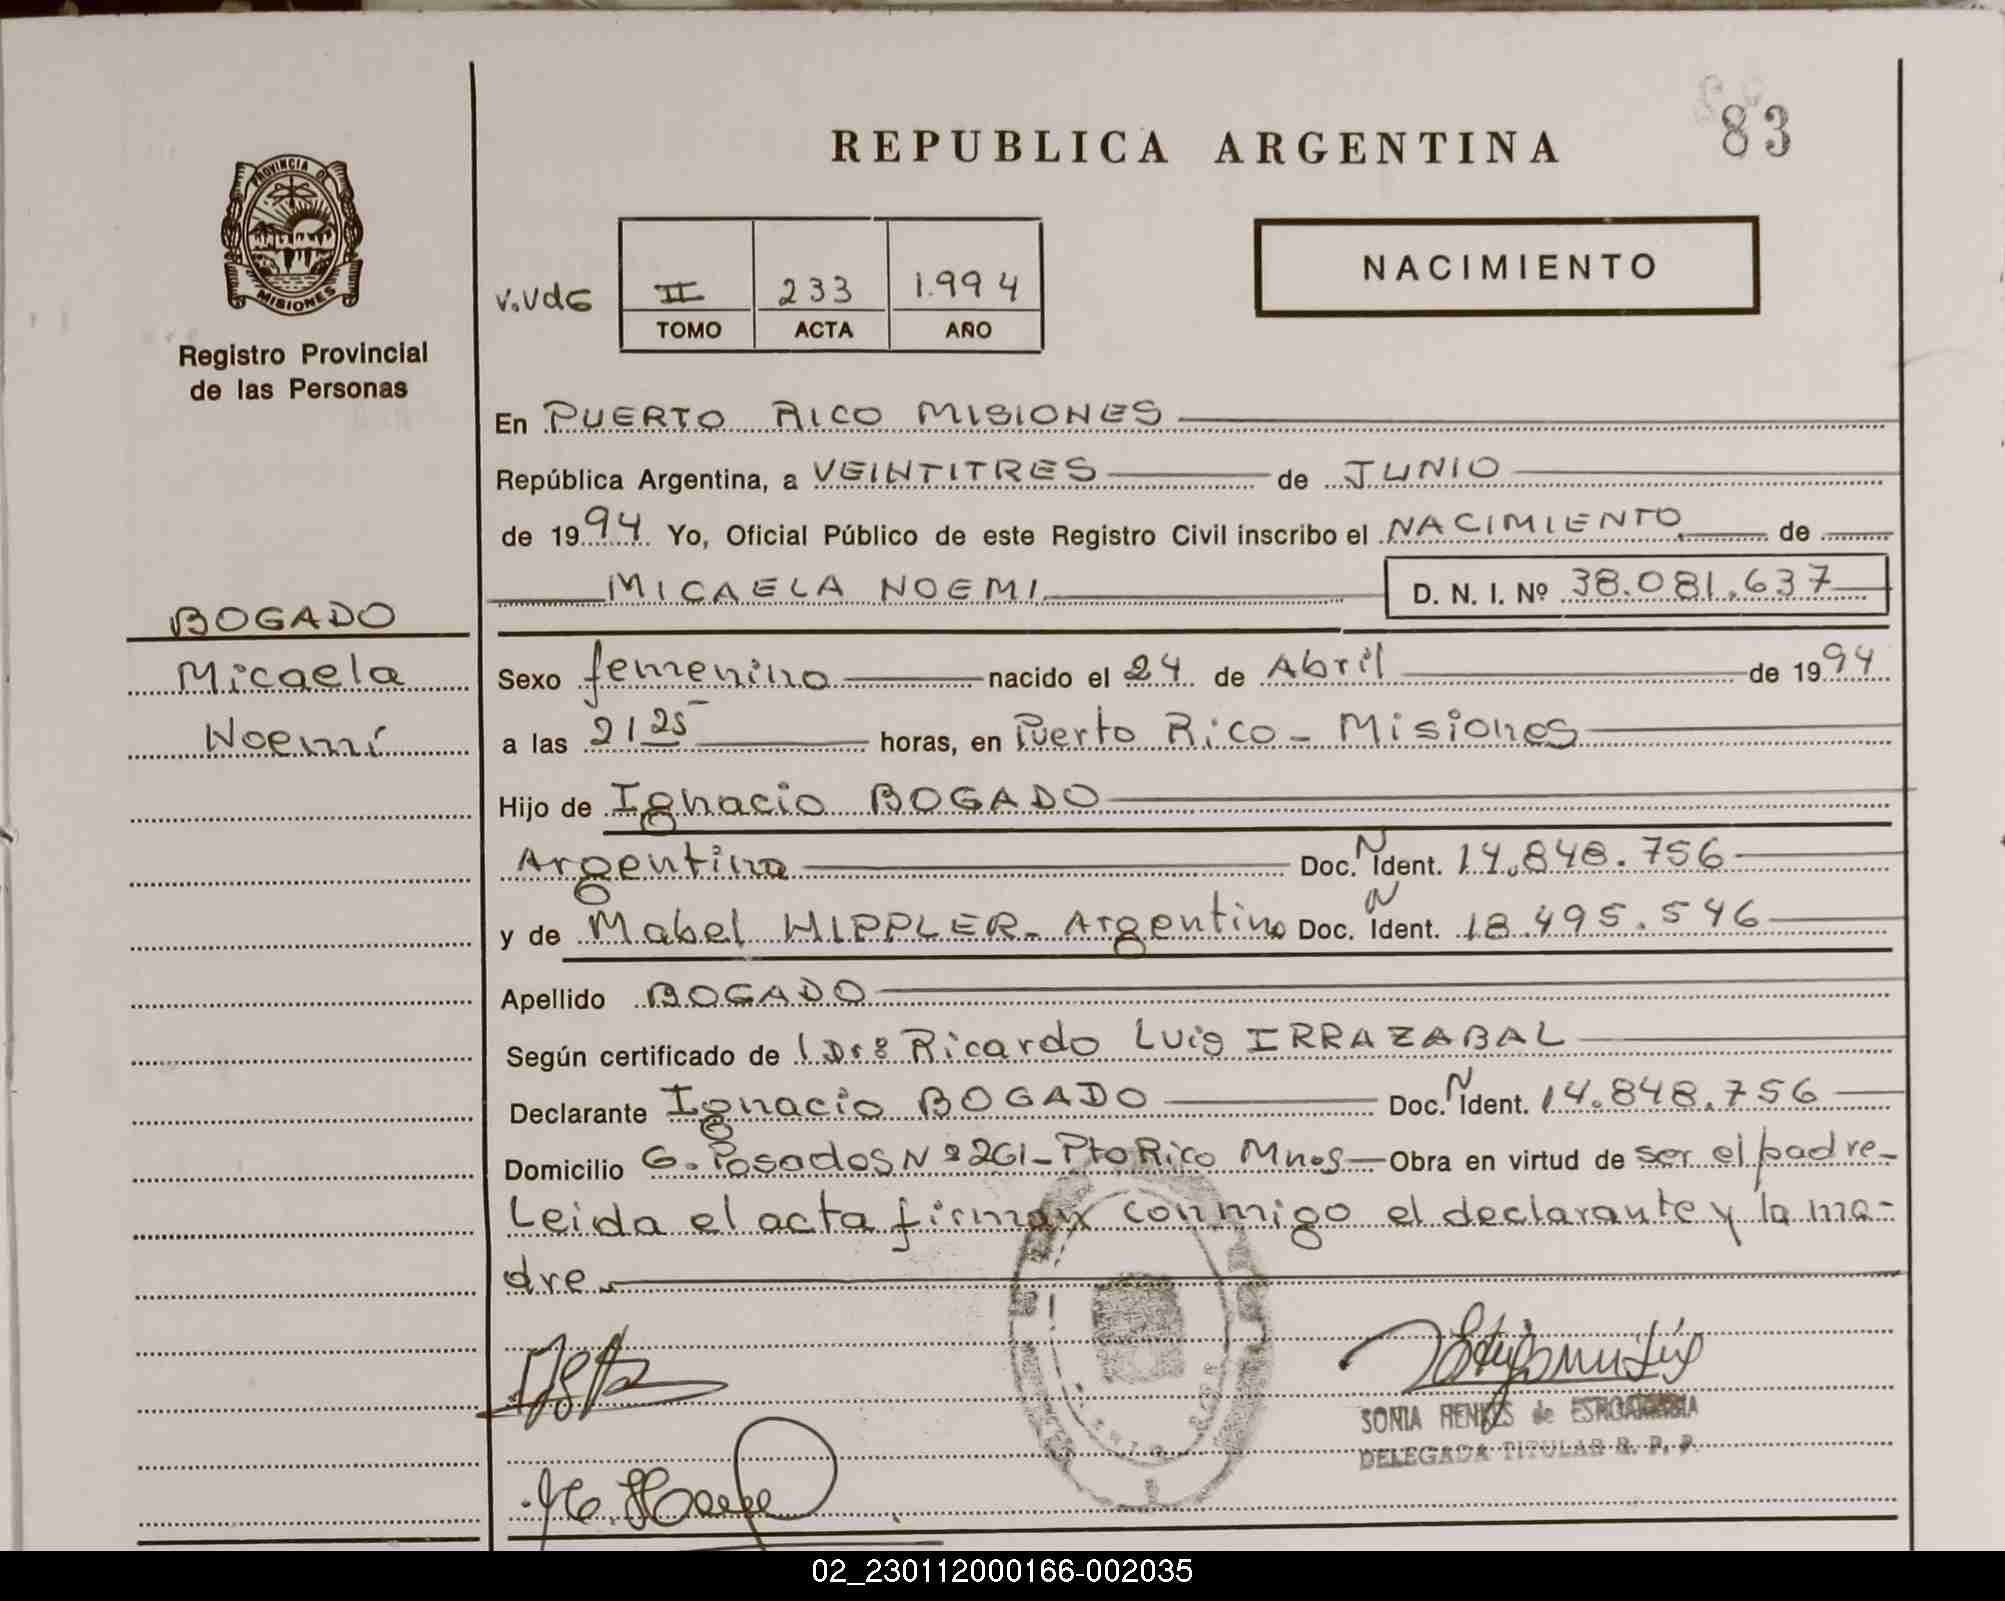 REPUBLICA ARGENTINA
83
PROVINCIA DE
MISIONES
Registro Provincial
de las Personas
NACIMIENTO
V.VdG
II 233 1.994
TOMO ACTA AÑO
En PUERTO RICO MISIONES
República Argentina, a VEINTITRES de JUNIO
de 1994 Yo, Oficial Público de este Registro Civil inscribo el NACIMIENTO de
MICAELA NOEMI D. N. I. Nº 38.081.637
BOGADO
Micaela
Noemí
Sexo femenino nacido el 24 de Abril de 1994
a las 21 25 horas, en Puerto Rico - Misiones
Hijo de Ignacio BOGADO
Argentina Doc. N Ident. 14.848.756
y de Mabel HIPPLER - Argentina Doc. N Ident. 18.495.546
Apellido BOGADO
Según certificado de l Dr: Ricardo Luis IRRAZABAL
Declarante Ignacio BOGADO Doc. N Ident. 14.848.756
Domicilio G. Posadas Nº 261 - Pto Rico Mnes - Obra en virtud de ser el padre -
Leida el acta firman conmigo el declarante y la ma-
dre.
SONIA HENKES de
DELEGADA TITULAR R. P. P.
02_230112000166-002035